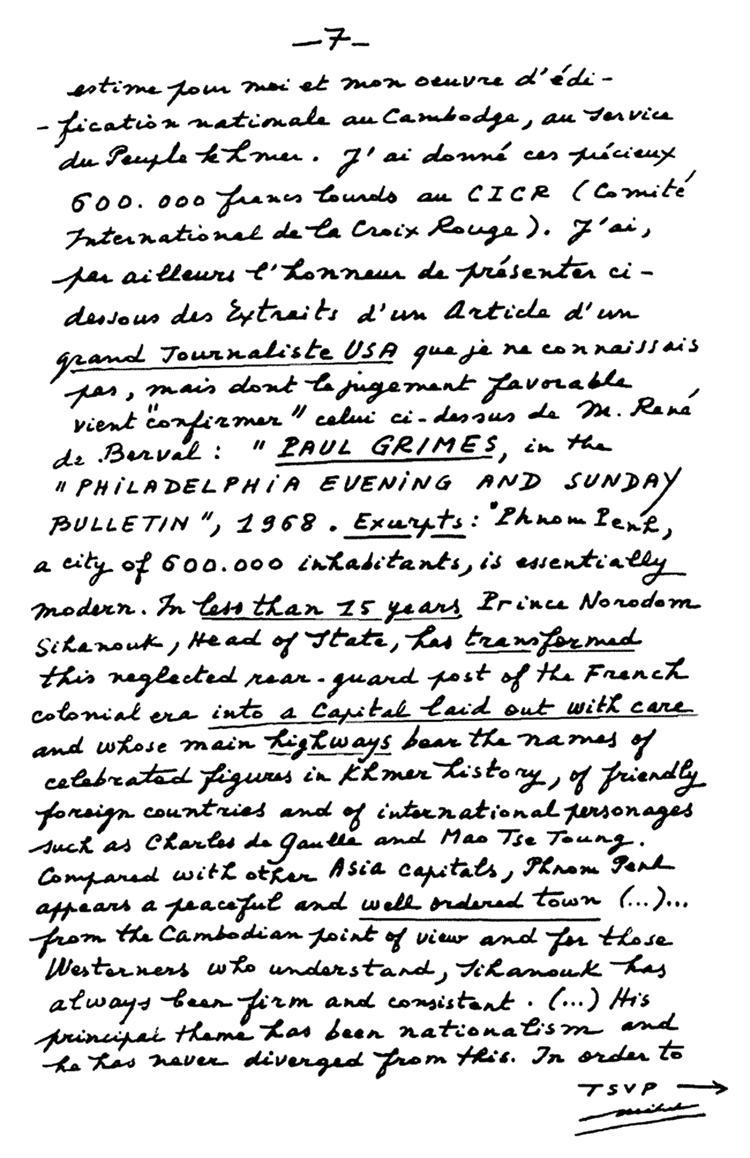 —7—
estime pour moi et mon oeuvre d'édi-
-fication nationale au Cambodge, au service
du Peuple khmer. J'ai donné ces précieux
600.000 francs lourds au CICR (Comité
International de la Croix Rouge). J'ai,
par ailleurs l'honneur de présenter ci-
dessous des Extraits d'un Article d'un
grand Journaliste USA que je ne connaissais
pas, mais dont le jugement favorable
vient "confirmer" celui ci-dessus de M. René
de Berval : "PAUL GRIMES, in the
"PHILADELPHIA EVENING AND SUNDAY
BULLETIN", 1968. Excerpts: "Phnom Penh,
a city of 600.000 inhabitants, is essentially
modern. In less than 15 years Prince Norodom
Sihanouk, Head of State, has transformed
this neglected rear-guard post of the French
colonial era into a Capital laid out with care
and whose main highways bear the names of
celebrated figures in Khmer history, of friendly
foreign countries and of international personages
such as Charles de Gaulle and Mao Tse Toung.
Compared with other Asia capitals, Phnom Penh
appears a peaceful and well ordered town (...)...
from the Cambodian point of view and for those
Westerners who understand, Sihanouk has
always been firm and consistent. (...) His
principal theme has been nationalism and
he has never diverged from this. In order to
TSVP →